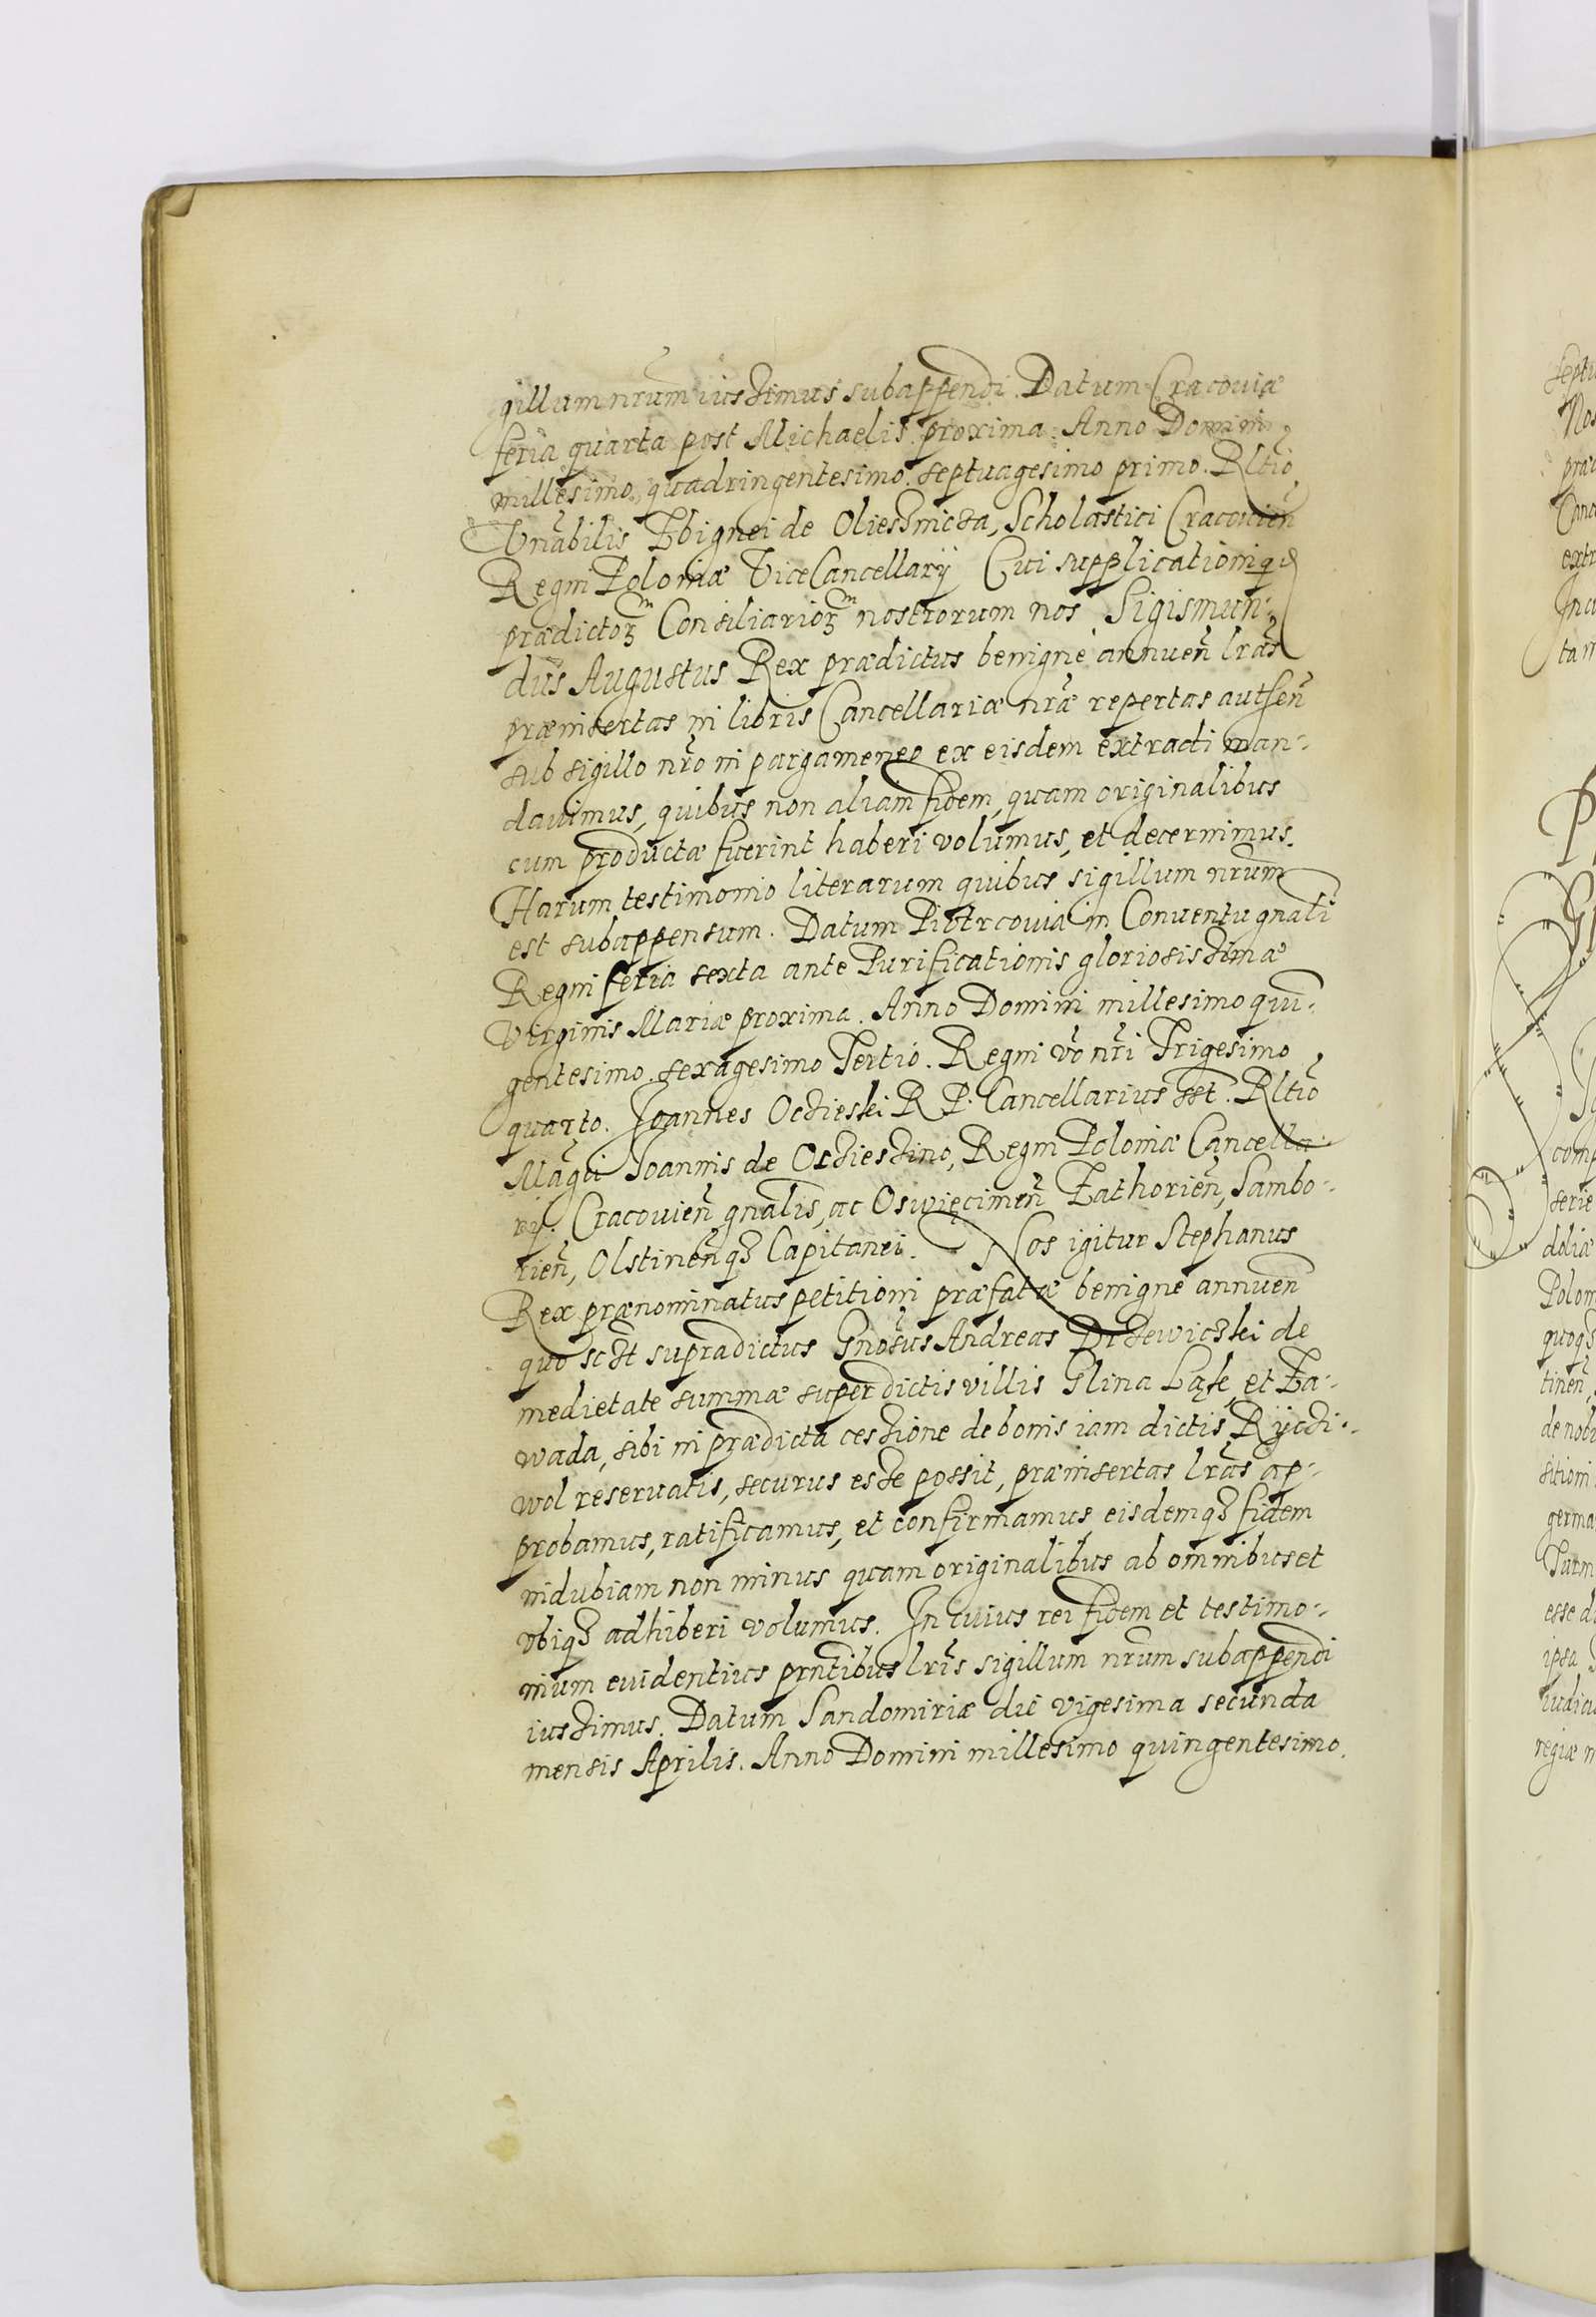 gillum nrum iussimus subappendi. Datum Cracoviæ
feria quarta post Michaelis proxima. Anno Domini
millesimo, quadringentesimo. septuagesimo primo. Rltio
Vnabilis Zbignei de Oliessnicza, Scholastici Cracovien̄
Regni Poloniæ ViceCancellarij Cui supplicationiq3
prædictoꝝ Consiliarioꝝ nostrorum nos Sigismun-
dus Augustus Rex prædictus benigne annuen̄ lras
præinsertas in libris Cancellariæ nræ repertas autsen̄
sub sigillo nro in pargameneo ex eisdem extradi man-
davimus, quibus non aliam fidem, quam originalibus
cum productæ fuerint haberi volumus, et decernimus.
Harum testimonio literarum quibus sigillum nrum
est subappensum. Datum Piotrcoviæ in Conventu gnali
Regni feria sexta ante Purificationis gloriosissimæ
Virginis Mariæ proxima. Anno Domini millesimo quin-
gentesimo. sexagesimo Tertio. Regni vo nri Trigesimo
quarto. Joannes Ocsieski R P. Cancellarius sst. Rltio
Magci Joannis de Ocssiessino, Regni Poloniæ Cancella-
rij. Cracovien̄ gnalis, ac Oswięcimen̄ Zathorien̄, Sambo-
rien̄, Olstinen̄q3 Capitanei. Nos igitur Stephanus
Rex prænominatus petitioni præfatæ benigne annuen̄
quo scst supradictus Gnosus Andreas Drsewiczki de
medietate summæ super dictis villis Glina Ląse, et Za-
wada, sibi in prædicta cessione de bonis iam dictis Ryczi-
wol reservatis, securus esse possit, præinsertas lras ap-
probamus, ratificamus, et confirmamus eisdemq3 fidem
indubiam non minus quam originalibus ab omnibus et
vbiq3 adhiberi volumus. In cuius rei fidem et testimo-
nium euidentius prntibus lris sigillum nrum subappendi
iussimus. Datum Sandomiriæ die vigesima secunda
mensis Aprilis. Anno Domini millesimo quingentesimo.